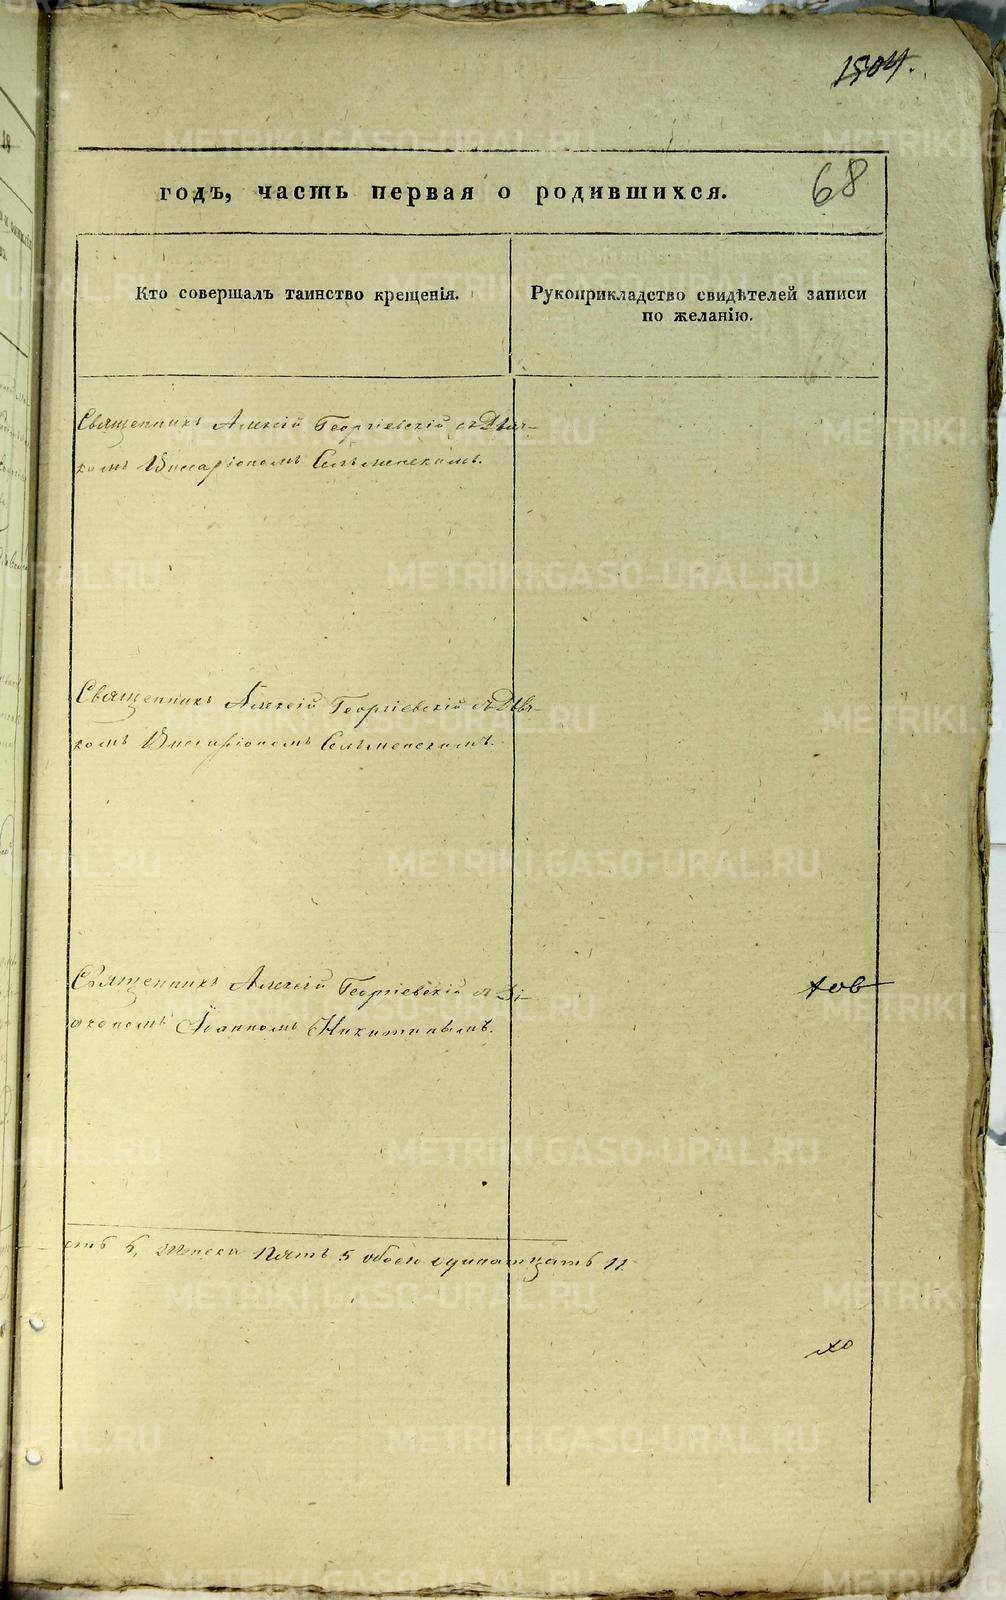 1504.
68
годъ, часть первая о родившихся.
Кто совершалъ таинство крещенія.
Рукоприкладство свидѣтелей записи
по желанію.
Священникъ Алексій Георгіевскій съ Дьяч-
комъ Виссаріономъ Селѣменскимъ.
Священникъ Алексій Георгіевскій съ Дьяч-
комъ Виссаріономъ Селѣменскимъ.
Священникъ Алексій Георгіевскій съ Ді-
акономъ Іоанномъ Никитинымъ.
ховъ
сть 6, женска пять 5 обоего одинатцать 11
METRIKI.GASO-URAL.RU